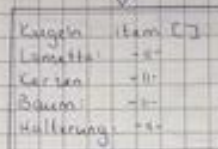 Kugeln: item []
Lametta: -"-
Kerzen: -"-
Baum: -"-
Halterung: -"-